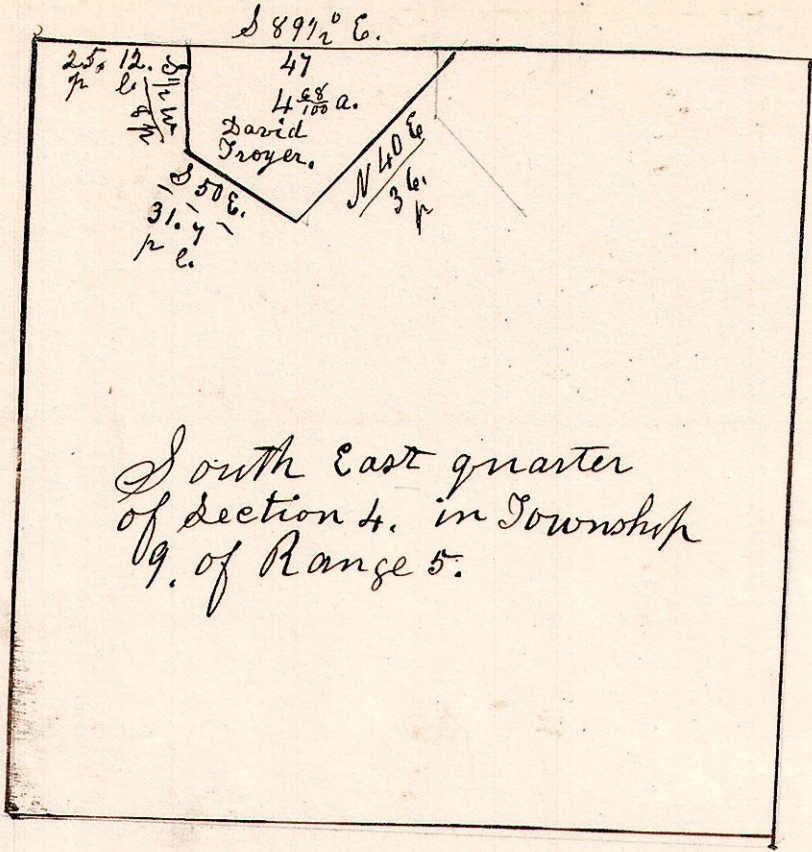 S 89 1/2° E.
25. 12.
p l.
S 1/2 W
8 p
47
4 68/100 a.
David
Troyer.
S 50 E.
31. 7
p l.
N 40 E
36.
p
South East quarter
of Section 4. in Township
9. of Range 5.